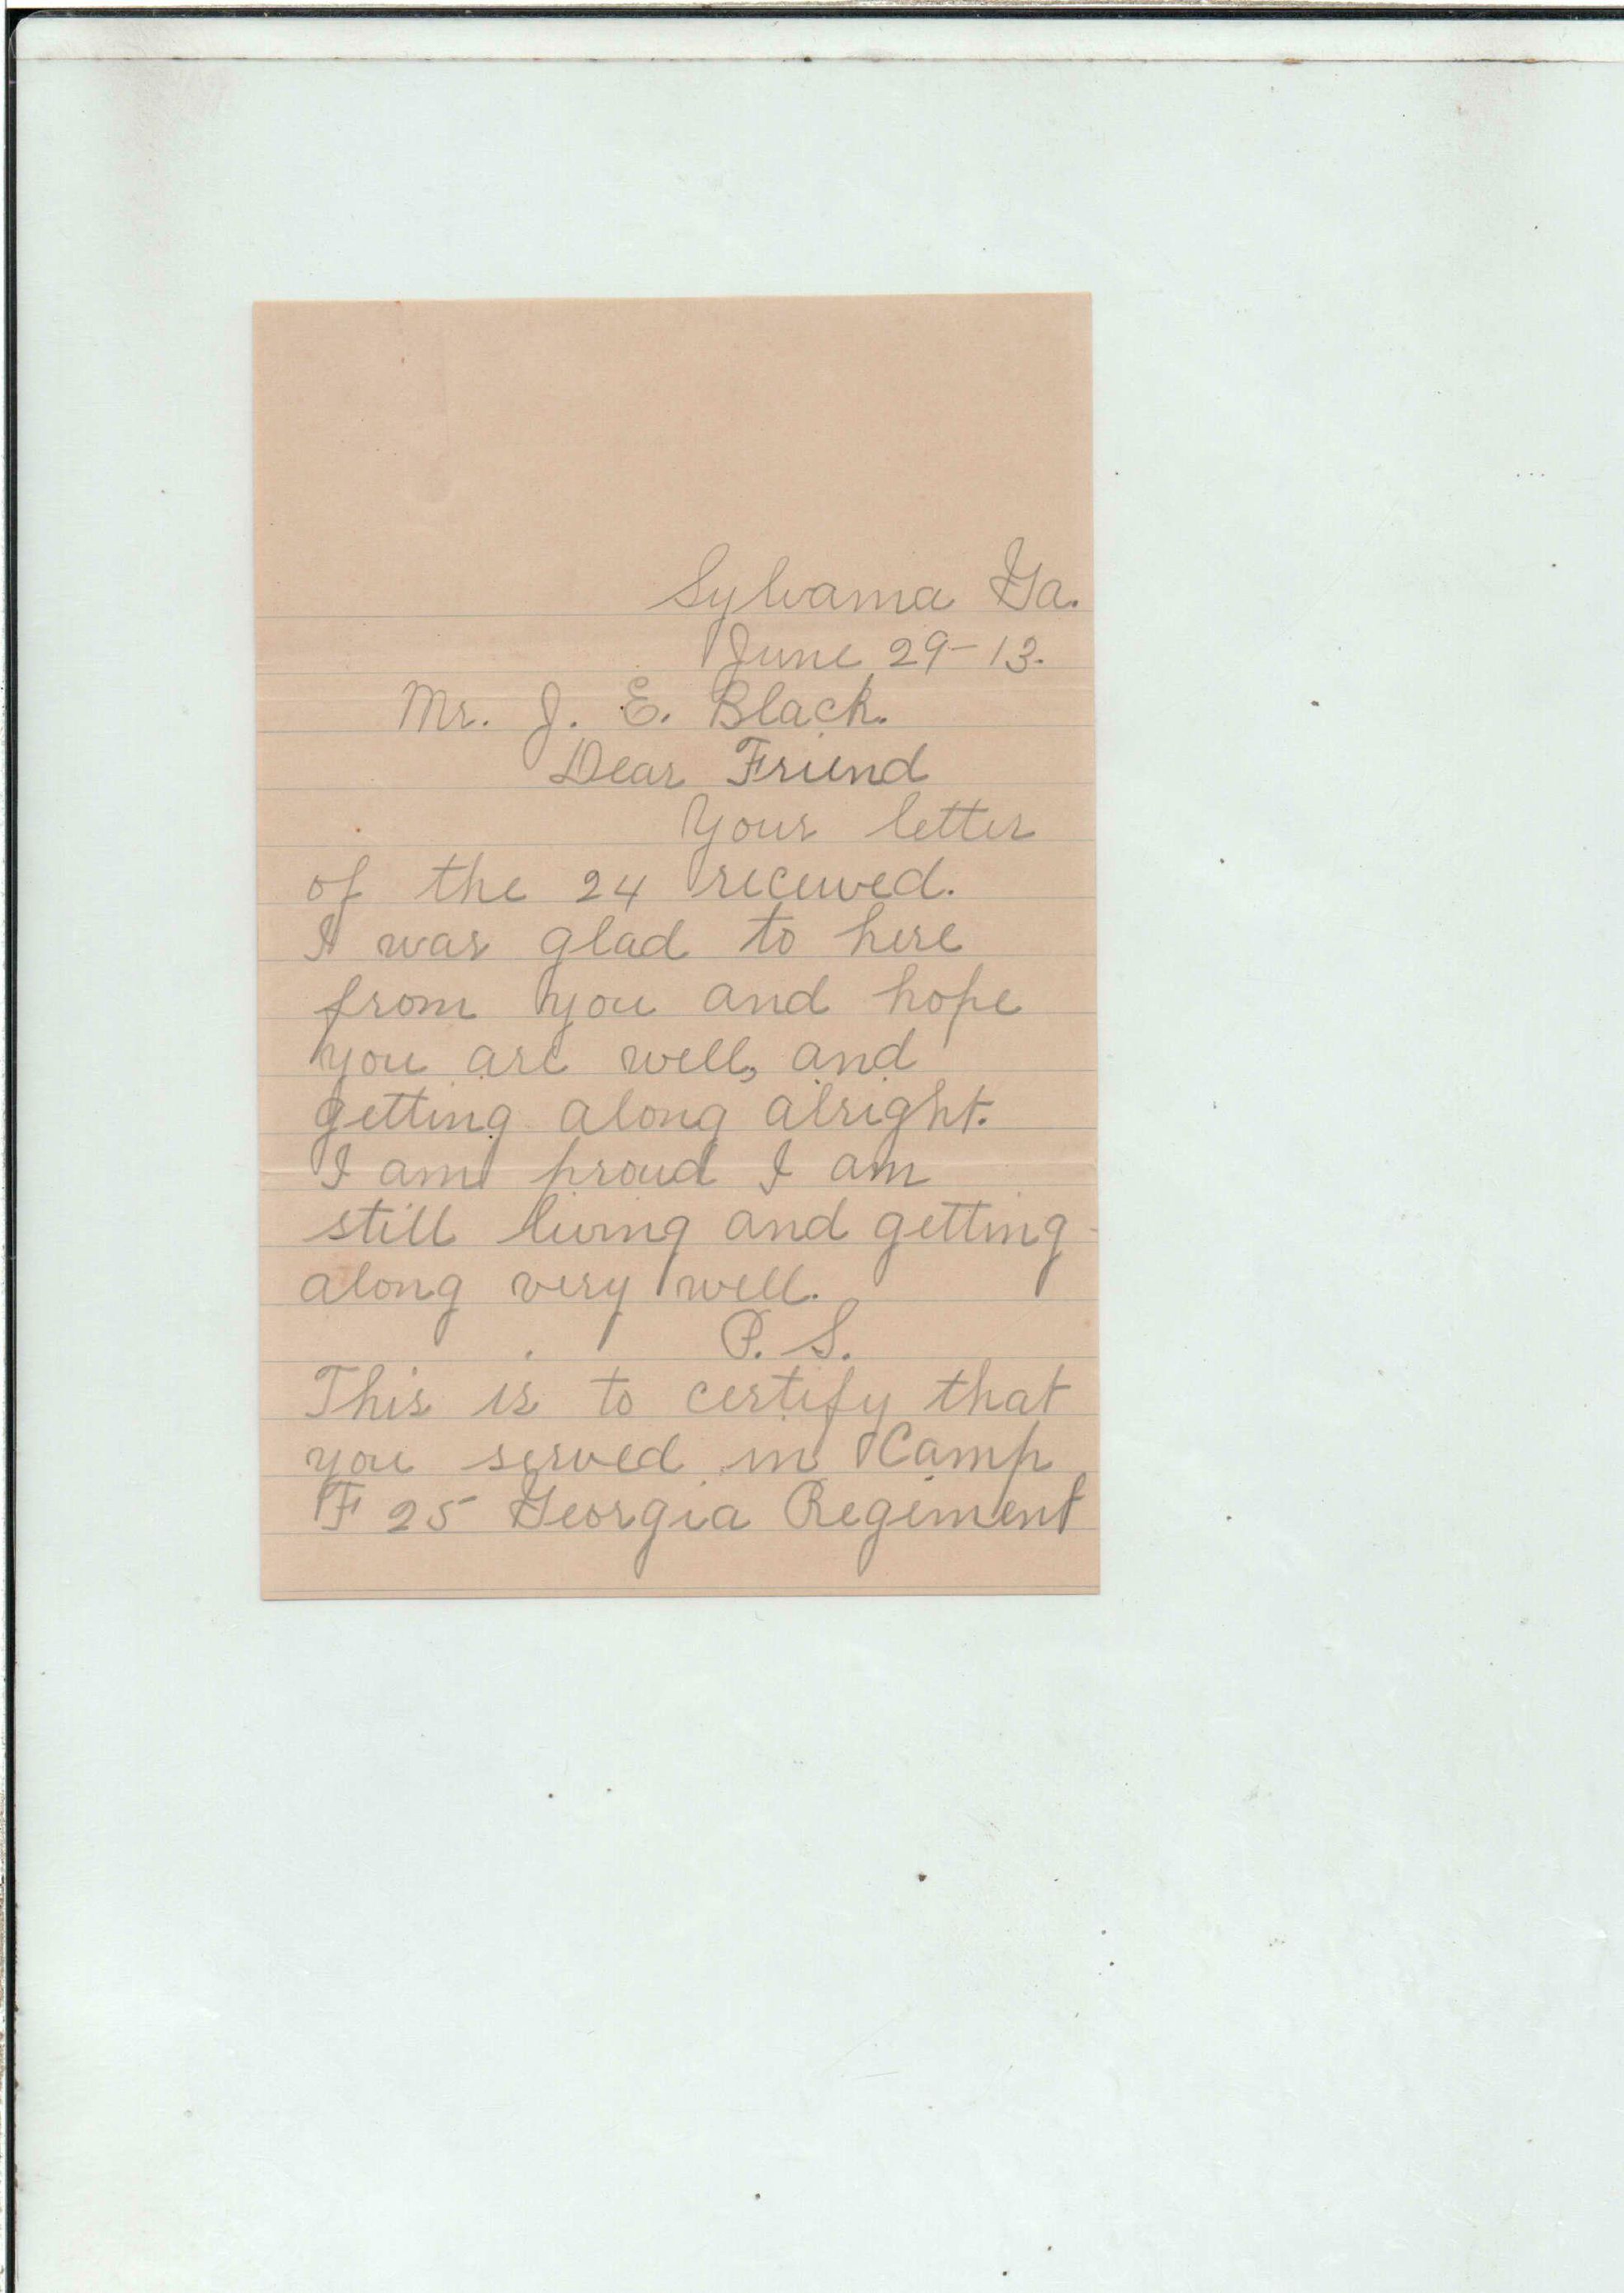 Sylvania Ga.
June 29-13.
Mr. J. E. Black.
Dear Friend
Your letter
of the 24 received.
I was glad to here
from you and hope
you are well, and
getting along alright.
I am proud I am
still living and getting
along very well.
P. S.
This is to certify that
you served in Camp
F 25 Georgia Regiment